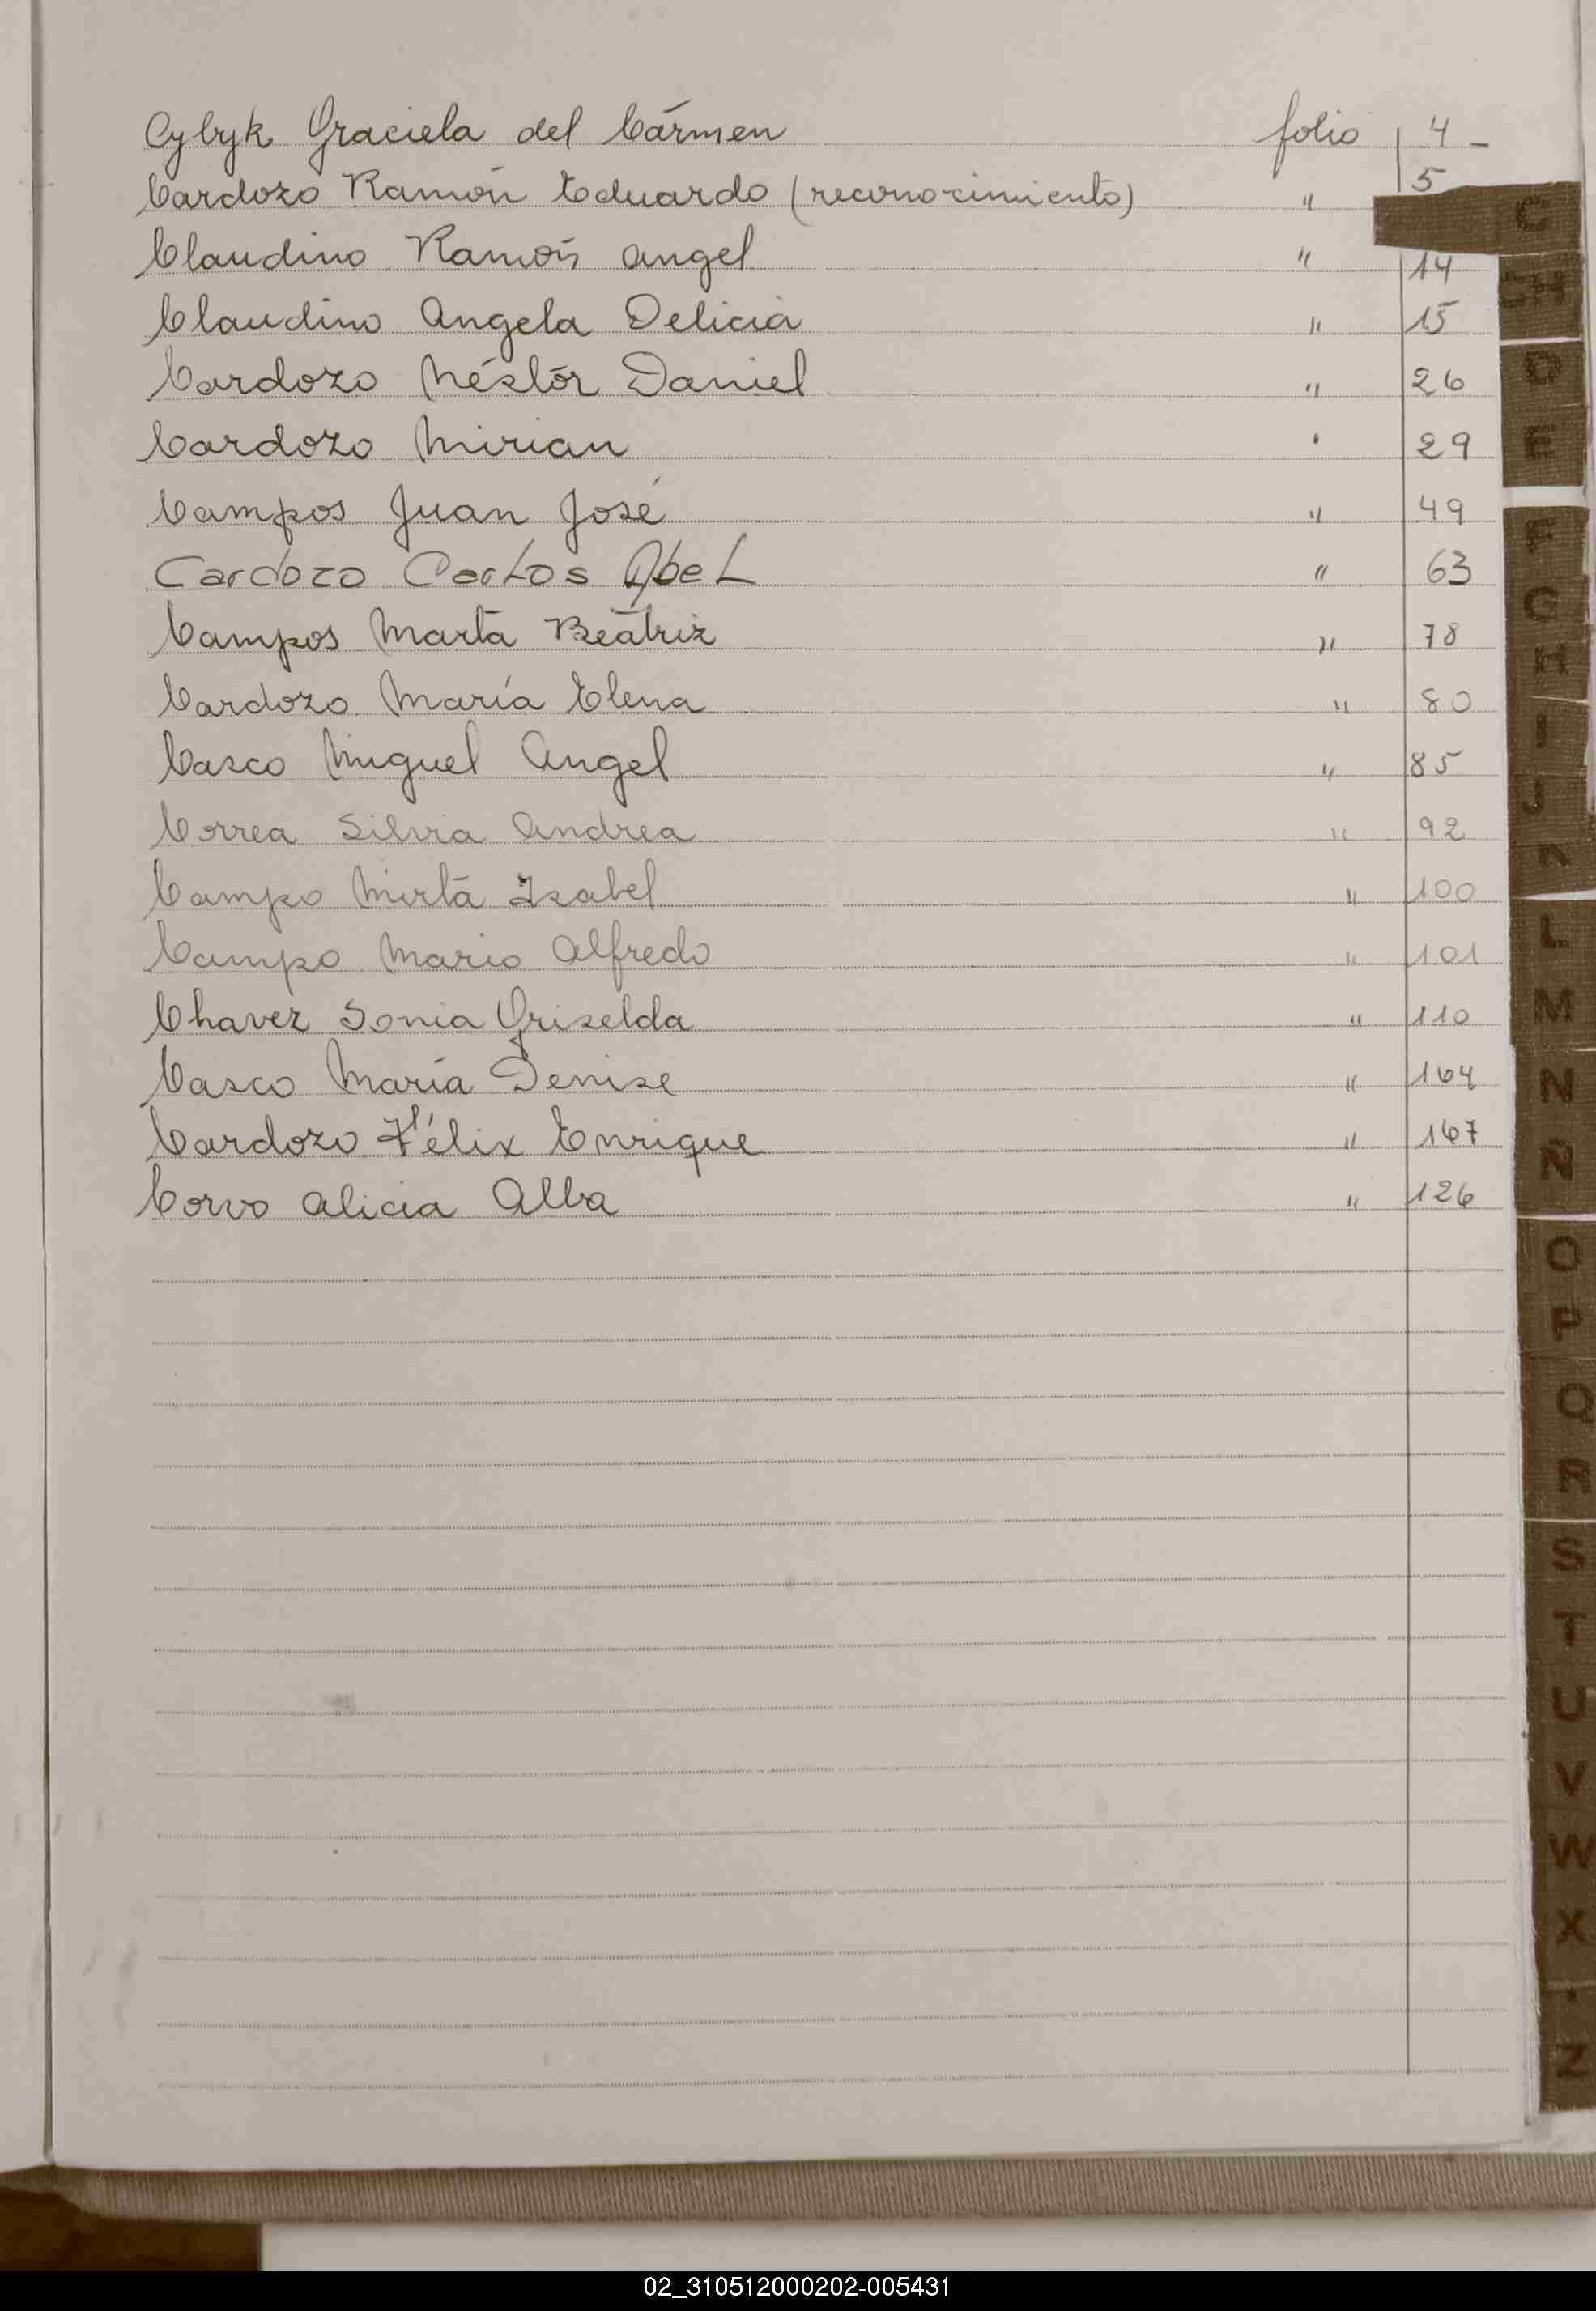 Cybyk Graciela del Cármen folio 4 -
Cardozo Ramón Eduardo (reconocimiento) " 5
Claudino Ramón Angel " 14
Claudino Angela Delicia " 15
Cardozo Néstor Daniel " 26
Cardozo Mirian " 29
Campos Juan José " 49
Cardozo Carlos Abel " 63
Campos Marta Beatriz " 78
Cardozo María Elena " 80
Casco Miguel Angel " 85
Correa Silvia Andrea " 92
Campo Mirta Isabel " 100
Campo Mario Alfredo " 101
Chavez Sonia Griselda " 110
Casco María Denise " 164
Cardozo Félix Enrique " 167
Corvo Alicia Alba " 126
C
CH
D
E
F
G
H
I
J
K
L
M
N
Ñ
O
P
Q
R
S
T
U
V
W
X
Z
02_310512000202-005431